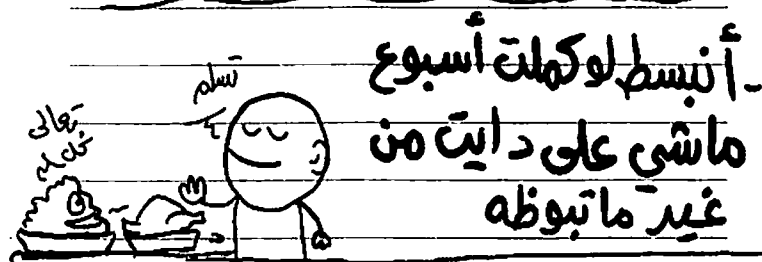 - أنبسط لو كملت أسبوع
ماشي على دايت من
غير ما تبوظه
تسلم
تعالى